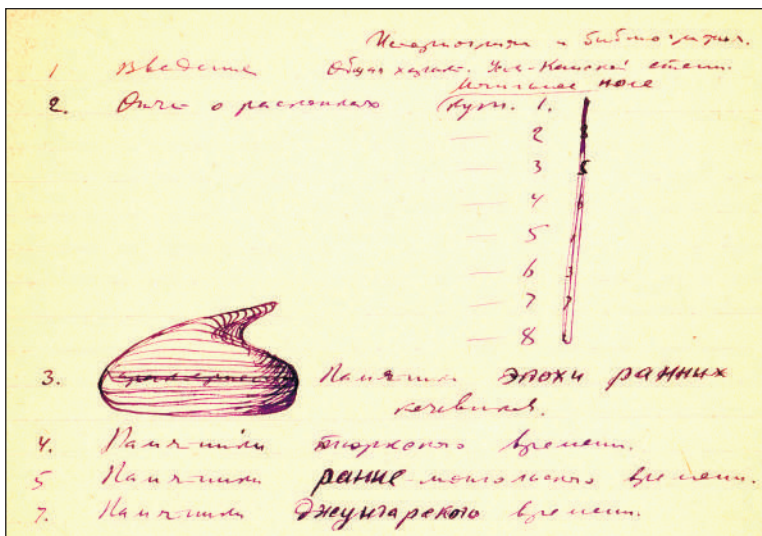 Историография и библиография.
1 Введение Общая характ. Усть-Канской степи.
Могильное поле
2. Отчет о раскопках Кург. 1.
— 2
— 3
— 4
— 5
— 6
— 7
— 8
3. Памятники эпохи ранних
кочевников.
4. Памятники тюркского времени.
5 Памятники ранне-монгольского времени.
7. Памятники джунгарского времени.